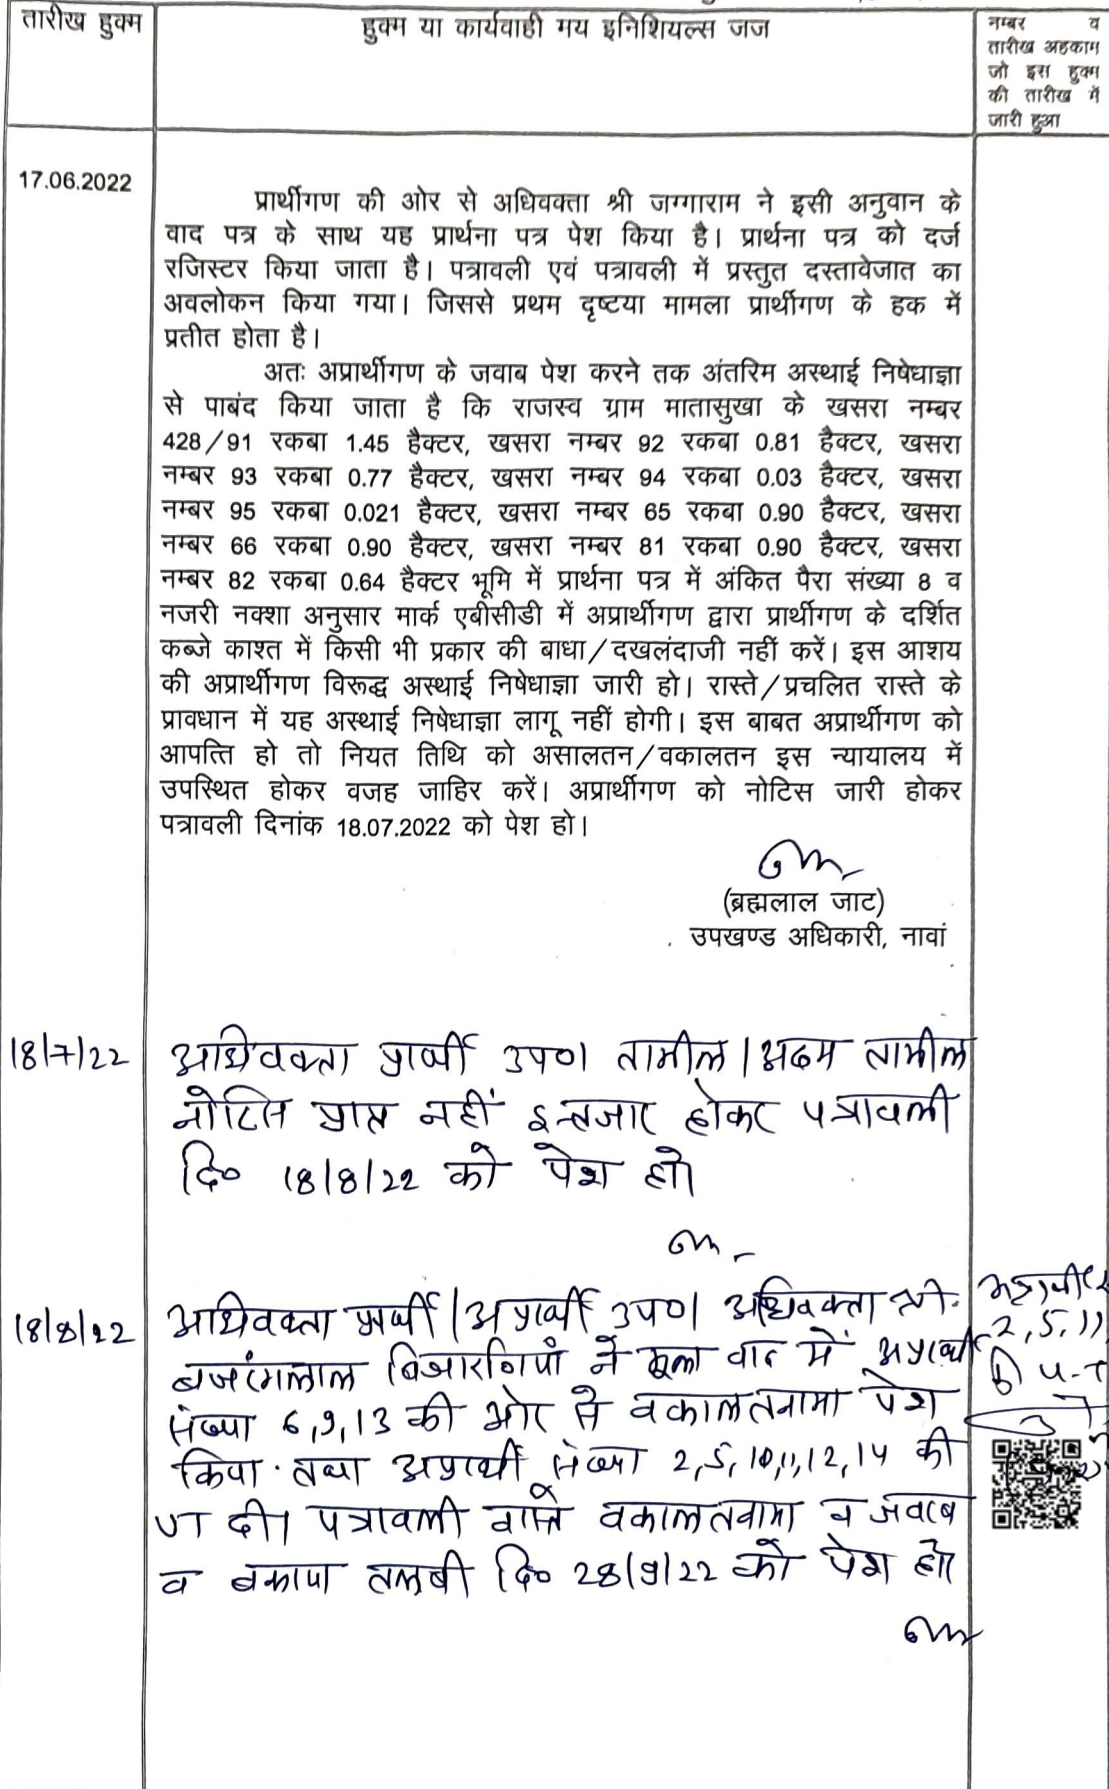 तारीख हुक्म
हुक्म या कार्यवाही मय इनिशियल्स जज
नम्बर व
तारीख अहकाम
जो इस हुक्म
की तारीख में
जारी हुआ
17.06.2022
प्रार्थीगण की ओर से अधिवक्ता श्री जग्गाराम ने इसी अनुवान के
वाद पत्र के साथ यह प्रार्थना पत्र पेश किया है। प्रार्थना पत्र को दर्ज
रजिस्टर किया जाता है। पत्रावली एवं पत्रावली में प्रस्तुत दस्तावेजात का
अवलोकन किया गया। जिससे प्रथम दृष्टया मामला प्रार्थीगण के हक में
प्रतीत होता है।
अतः अप्रार्थीगण के जवाब पेश करने तक अंतरिम अस्थाई निषेधाज्ञा
से पाबंद किया जाता है कि राजस्व ग्राम मातासुखा के खसरा नम्बर
428/91 रकबा 1.45 हैक्टर, खसरा नम्बर 92 रकबा 0.81 हैक्टर, खसरा
नम्बर 93 रकबा 0.77 हैक्टर, खसरा नम्बर 94 रकबा 0.03 हैक्टर, खसरा
नम्बर 95 रकबा 0.021 हैक्टर, खसरा नम्बर 65 रकबा 0.90 हैक्टर, खसरा
नम्बर 66 रकबा 0.90 हैक्टर, खसरा नम्बर 81 रकबा 0.90 हैक्टर, खसरा
नम्बर 82 रकबा 0.64 हैक्टर भूमि में प्रार्थना पत्र में अंकित पैरा संख्या 8 व
नजरी नक्शा अनुसार मार्क एबीसीडी में अप्रार्थीगण द्वारा प्रार्थीगण के दर्शित
कब्जे काश्त में किसी भी प्रकार की बाधा/दखलंदाजी नहीं करें। इस आशय
की अप्रार्थीगण विरूद्ध अस्थाई निषेधाज्ञा जारी हो। रास्ते/प्रचलित रास्ते के
प्रावधान में यह अस्थाई निषेधाज्ञा लागू नहीं होगी। इस बाबत अप्रार्थीगण को
आपत्ति हो तो नियत तिथि को असालतन/वकालतन इस न्यायालय में
उपस्थित होकर वजह जाहिर करें। अप्रार्थीगण को नोटिस जारी होकर
पत्रावली दिनांक 18.07.2022 को पेश हो।
(ब्रह्मलाल जाट)
उपखण्ड अधिकारी, नावां
18/7/22
अधिवक्ता प्रार्थी उप0। तामील/अदम तामील
नोटिस प्राप्त नहीं इन्तजार होकर पत्रावली
दि० 18/8/22 को पेश हो।
18/8/22
अधिवक्ता प्रार्थी/अप्रार्थी उप0। अधिवक्ता श्री
बजरंगलाल बिजारणियां ने मूल वाद में अप्रार्थी
संख्या 6,9,13 की ओर से वकालतनामा पेश
किया. तथा अप्रार्थी संख्या 2,5,10,11,12,14 की
UT दी। पत्रावली वास्ते वकालतनामा व जवाब
व बकाया तलबी दि० 28/9/22 को पेश हो।
अप्रार्थी
2,5,11